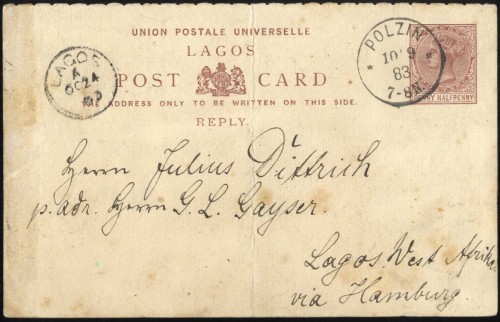 UNION POSTALE UNIVERSELLE
LAGOS
POST CARD
ADDRESS ONLY TO BE WRITTEN ON THIS SIDE.
REPLY.
LAGOS
A
OC 24
83
POLZIN
10 9
83
7-8N.
PENNY HALFPENNY
Herrn Julius Dittrich
p. adr. Herrn G. L. Gayser.
Lagos, West Afrika.
via Hamburg.